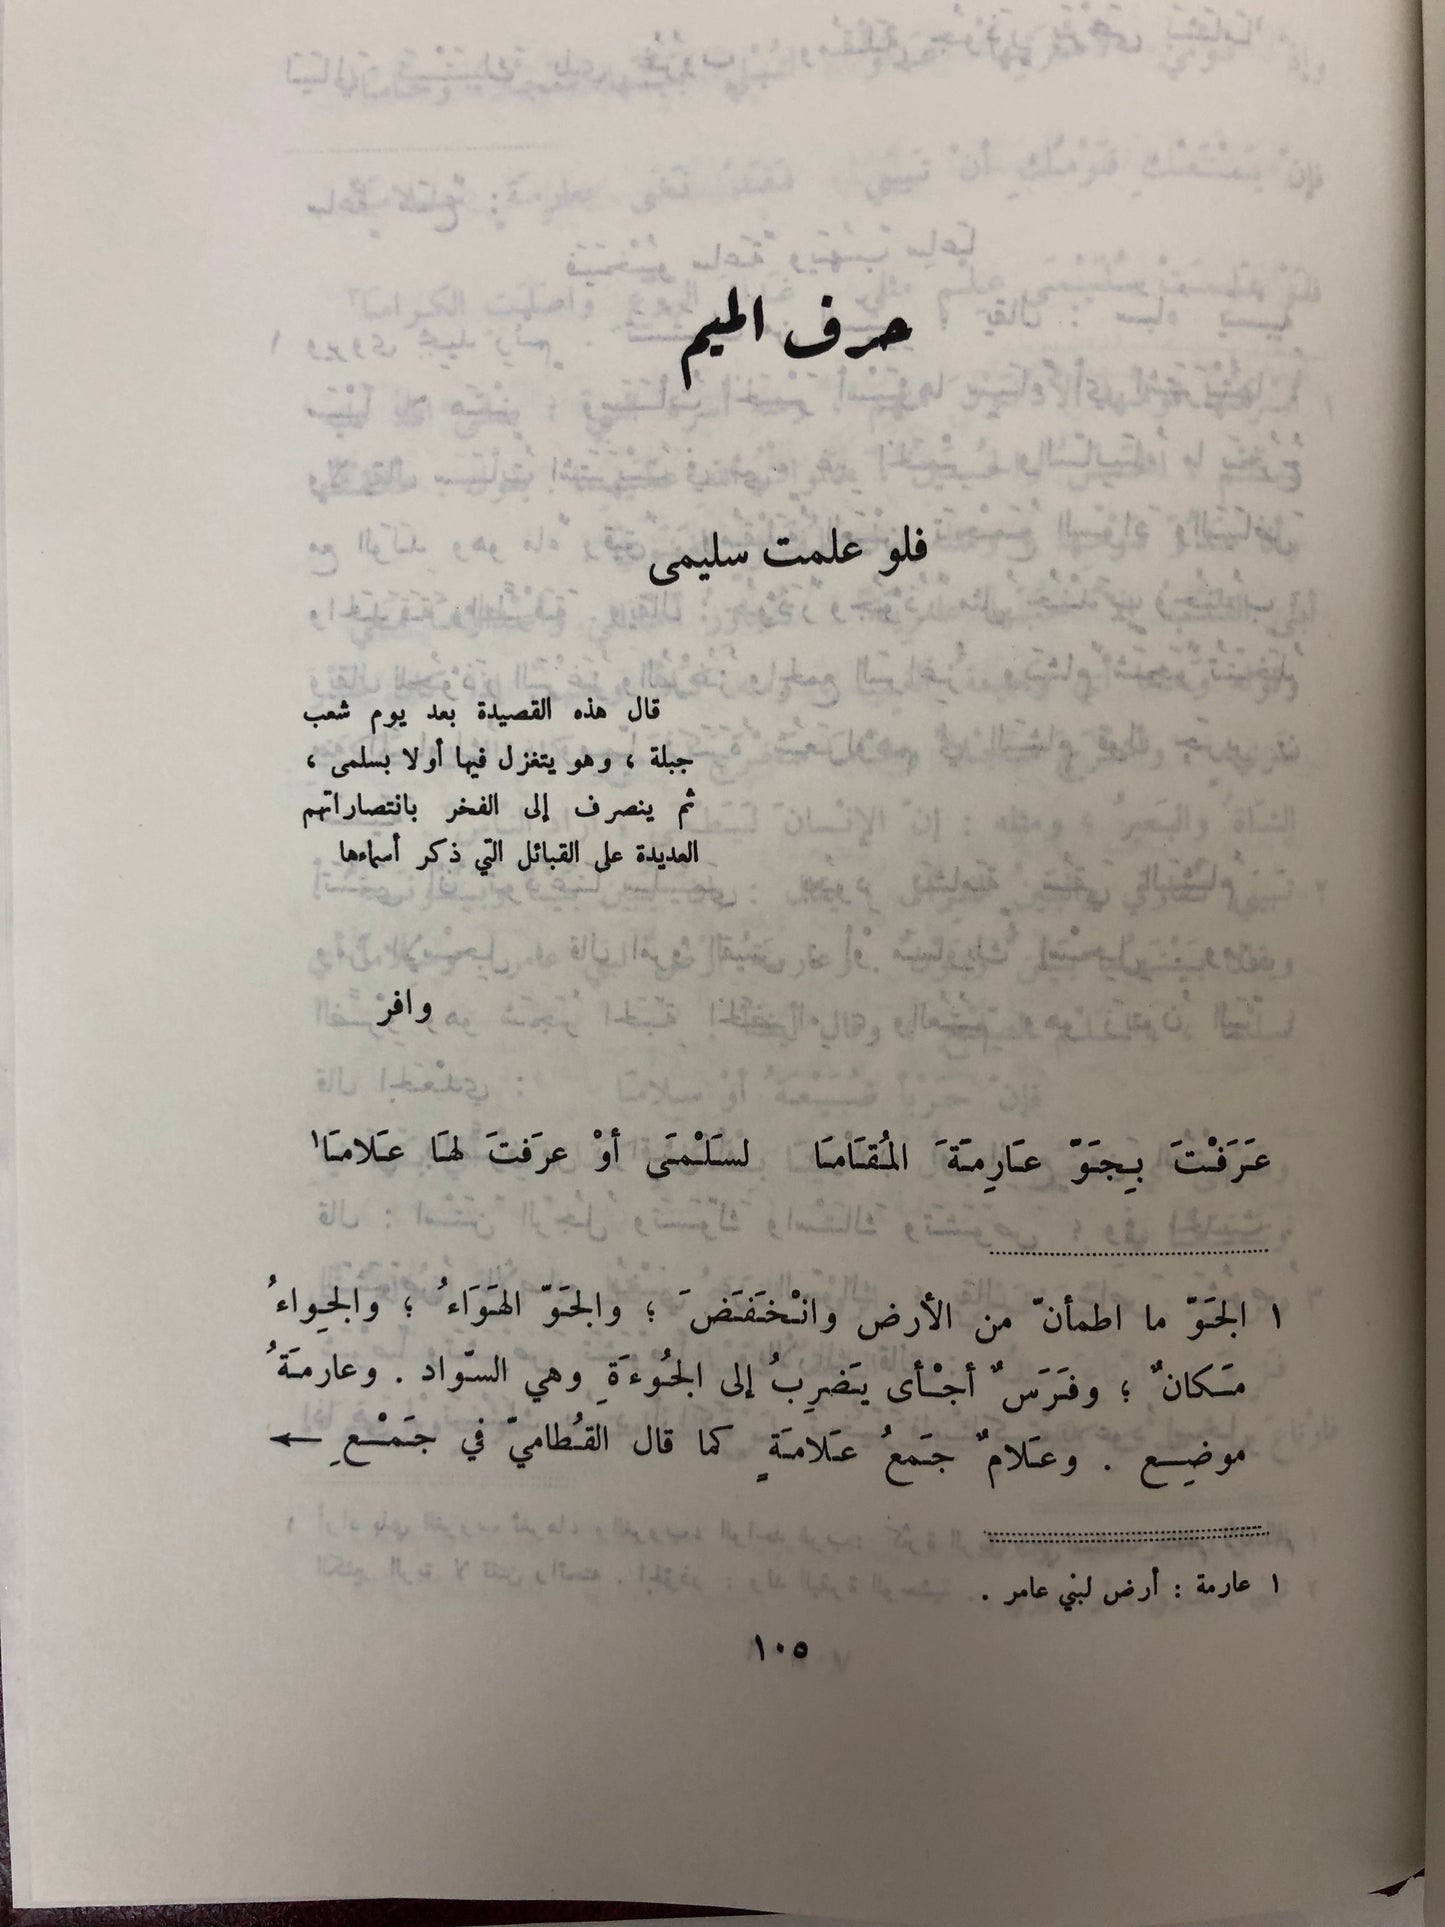 حرف الميم
فلو علمت سليمى
قال هذه القصيدة بعد يوم شعب
جبلة ، وهو يتغزل فيها أولا بسلمى ،
ثم ينصرف إلى الفخر بانتصاراتهم
العديدة على القبائل التي ذكر أسماءها
وافر
عَرَفْتَ بِجَوّ عَارِمَةَ المُقَامَا لسَلْمَى أوْ عرَفتَ لهَا عَلامَا١
١ الجَوّ ما اطمأنّ من الأرض وانْخَفَضَ ؛ والجَوّ الهَوَاءُ ؛ والجِواءُ
مَكانٌ ؛ وفَرَسٌ أجْأى يَضرِبُ إلى الجُوءَةِ وهي السّواد . وعارمَةُ
موضِع . وعَلامٌ جَمعُ عَلامَةٍ كما قال القُطاميّ في جَمْعِ ←
١ عارمة : أرض لبني عامر .
١٠٥